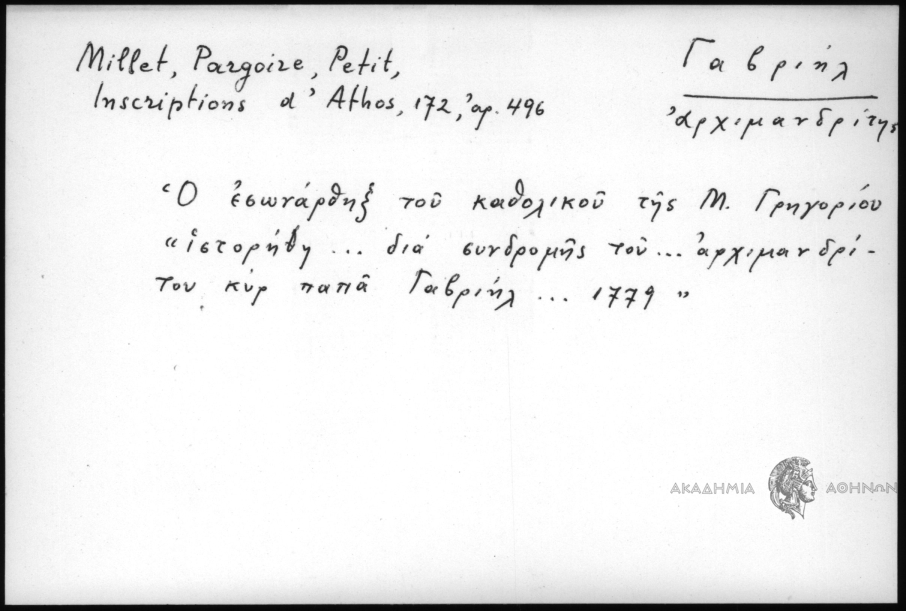 Millet, Pargoire, Petit,
Inscriptions d'Athos, 172, ἀρ. 496
Γαβριήλ
ἀρχιμανδρίτης
Ὁ ἐσωνάρθηξ τοῦ καθολικοῦ τῆς Μ. Γρηγορίου
"ἱστορήθη ... διά συνδρομῆς τοῦ ... ἀρχιμανδρί-
του κύρ παπᾶ Γαβριήλ ... 1779"
ΑΚΑΔΗΜΙΑ ΑΘΗΝΩΝ